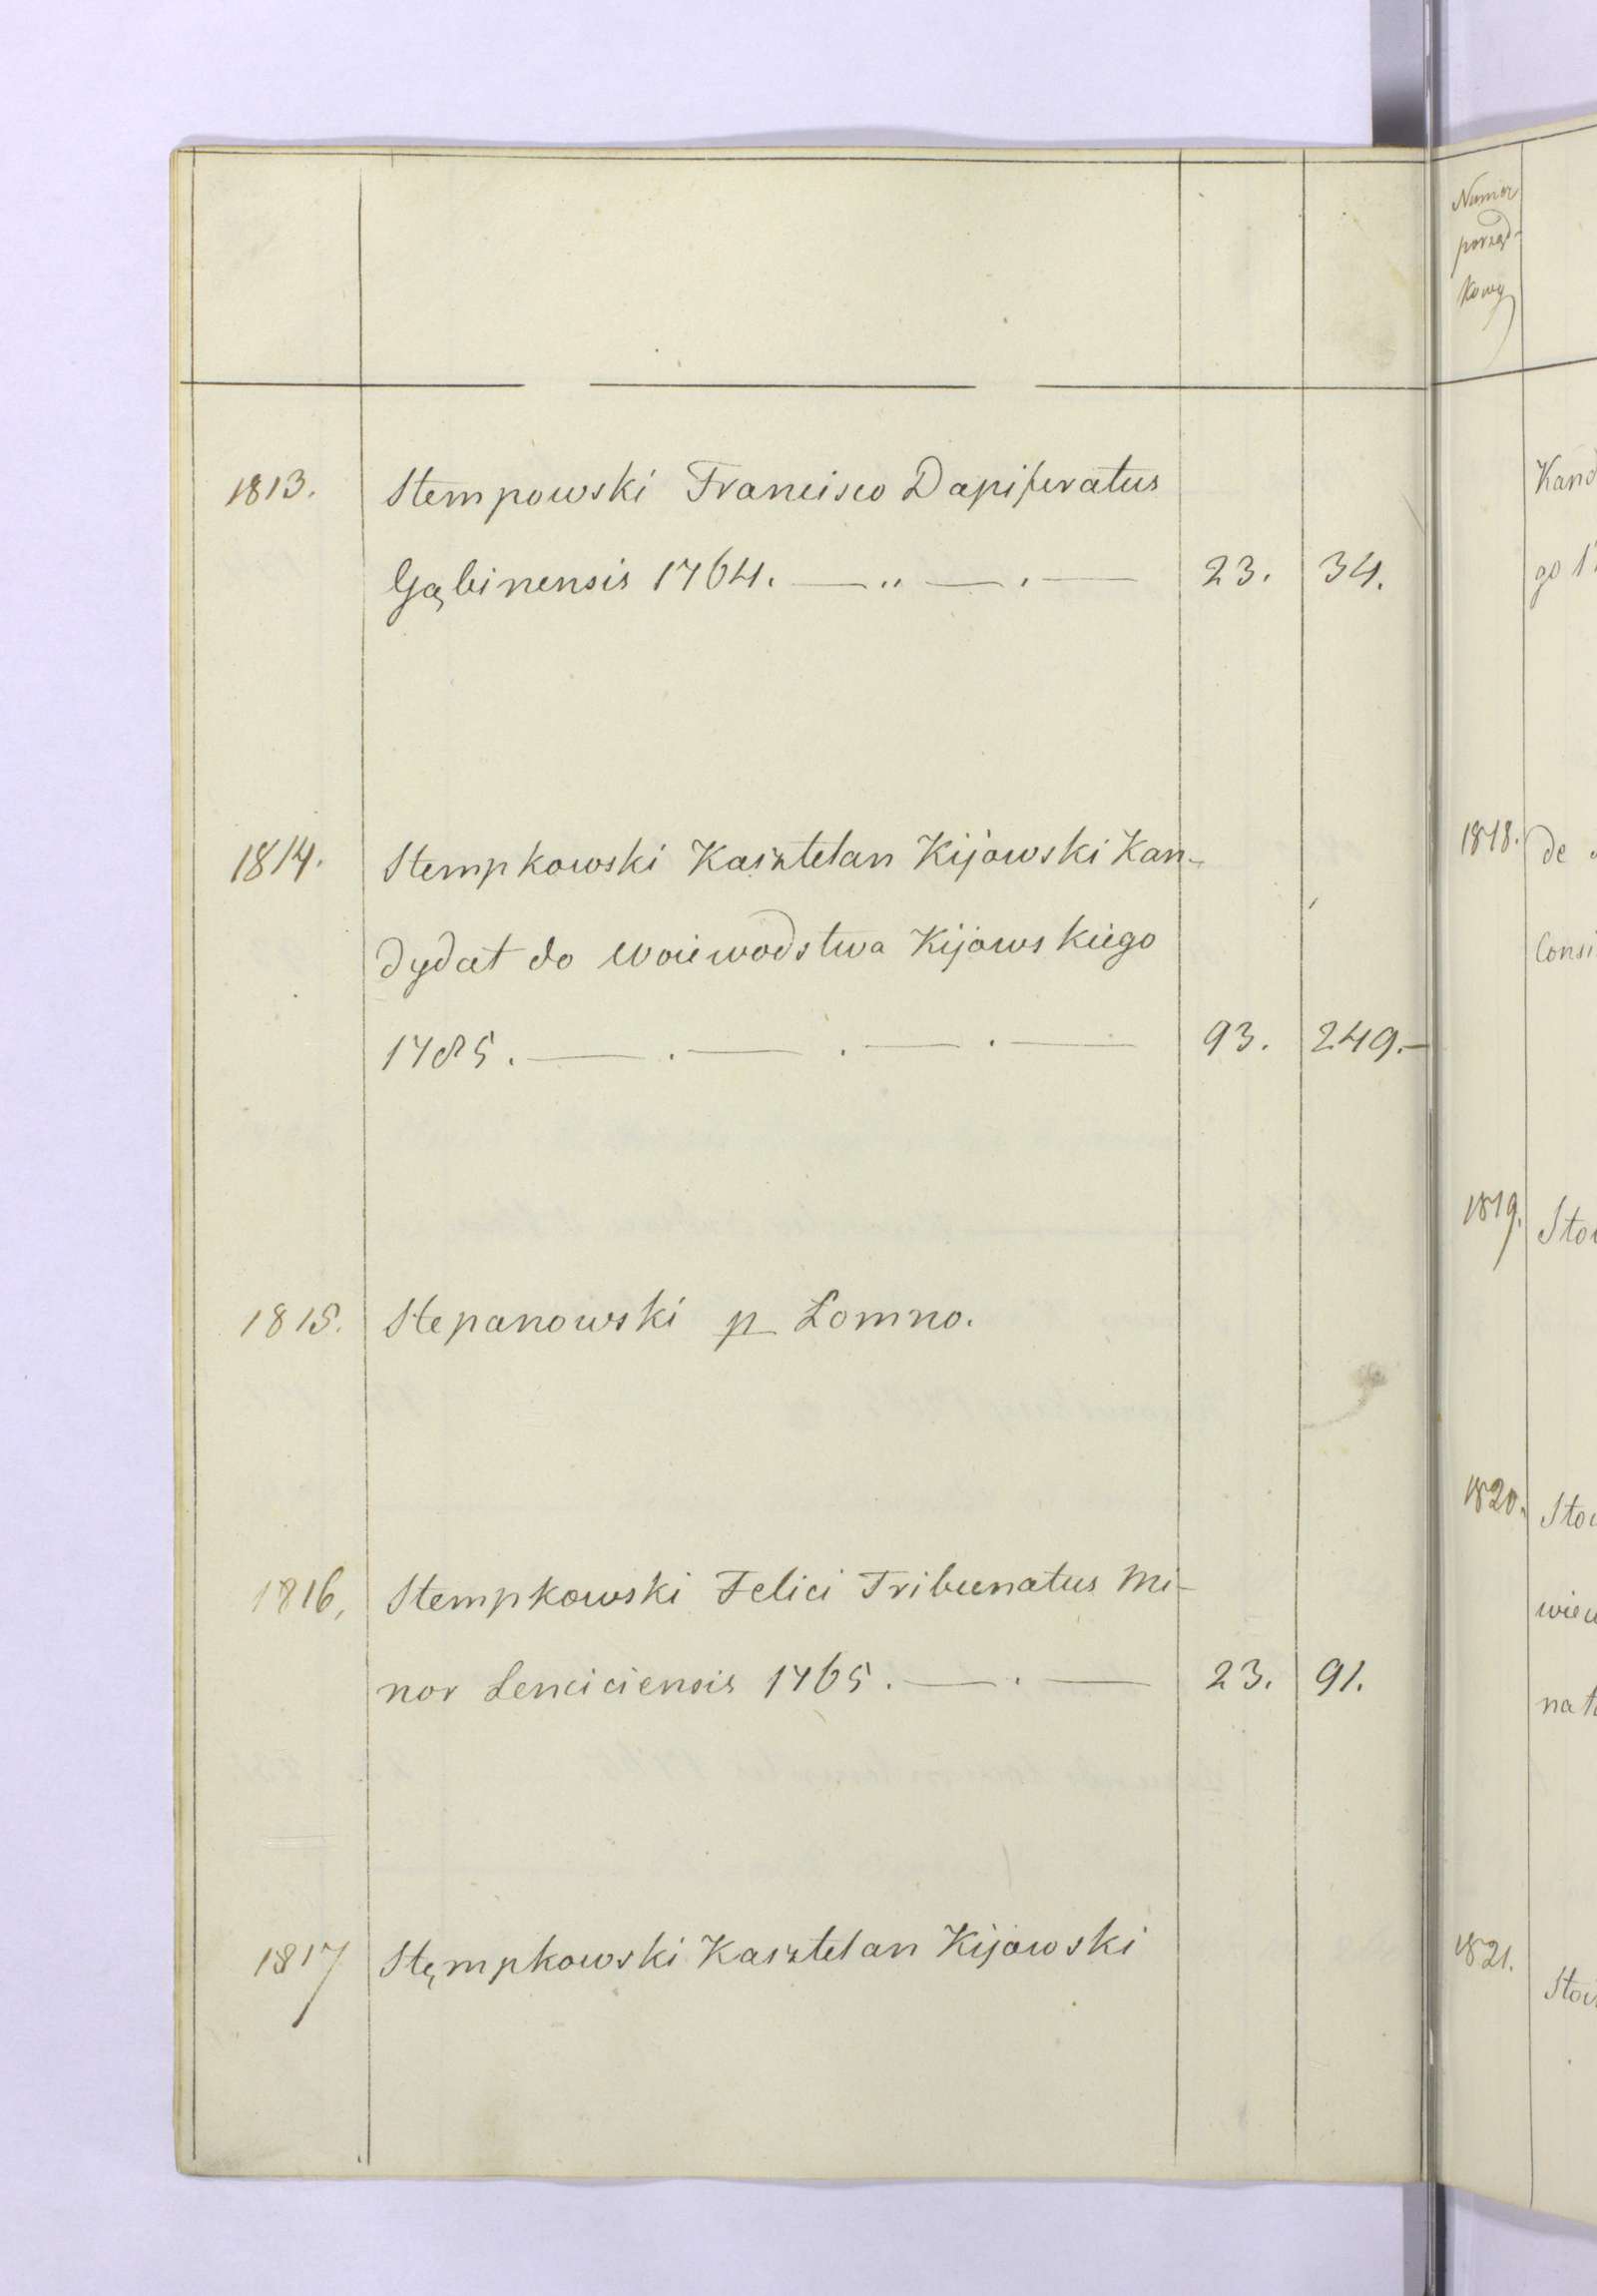 1813. Stempowski Francisco Dapiferatus
Gąbinensis 1764. — „ — . — 23. 34.
1814. Stempkowski Kasztelan Kijowski Kan-
dydat do Woiewodstwa Kijowskiego
1785. — . — . — . — 93. 249.—
1815. Stepanowski p Łomno.
1816. Stempkowski Felici Tribunatus Mi-
nor Lenciciensis 1765. — . — 23. 91.
1817 Stępmkowski Kasztelan Kijowski
Numer
porząd-
kowy
Kand
go
1818. de
Consi
1819. Sto
1820. Sto
wiew
nat
1821. Sto